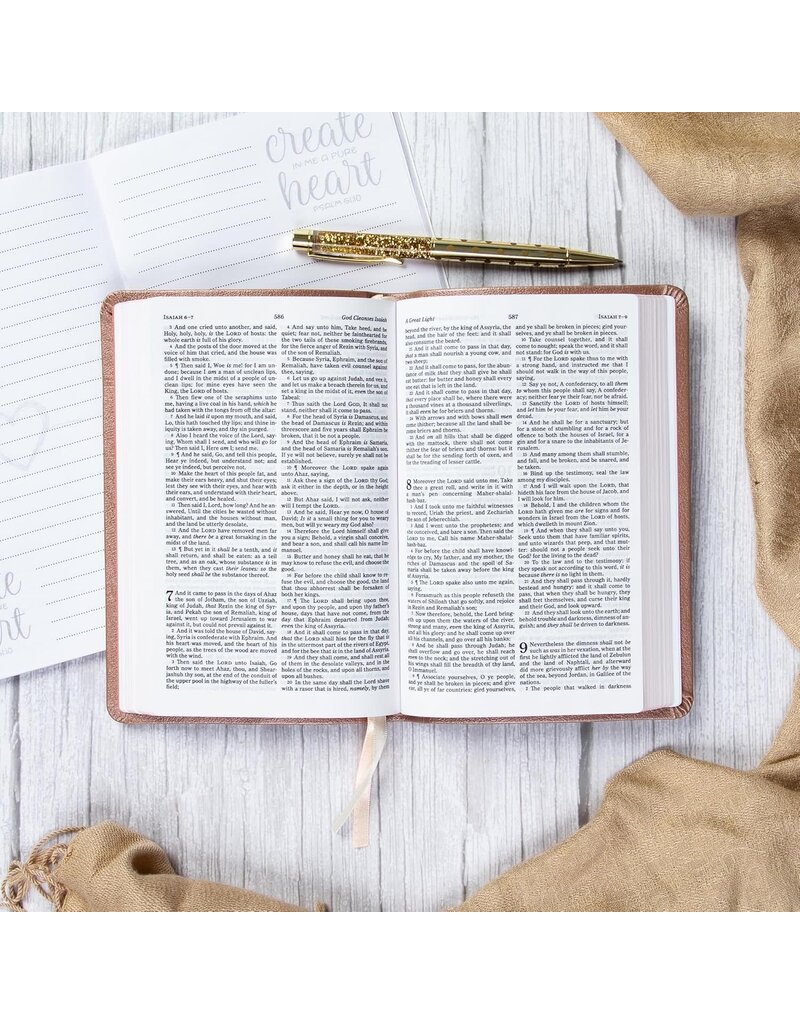 create
IN ME A PURE
heart
PSALM 51:10
ISAIAH 6–7
586
God Cleanses Isaiah
3 And one cried unto another, and said,
Holy, holy, holy, is the LORD of hosts: the
whole earth is full of his glory.
4 And the posts of the door moved at the
voice of him that cried, and the house was
filled with smoke.
5 ¶ Then said I, Woe is me! for I am un-
done; because I am a man of unclean lips,
and I dwell in the midst of a people of un-
clean lips: for mine eyes have seen the
King, the LORD of hosts.
6 Then flew one of the seraphims unto
me, having a live coal in his hand, which he
had taken with the tongs from off the altar:
7 And he laid it upon my mouth, and said,
Lo, this hath touched thy lips; and thine in-
iquity is taken away, and thy sin purged.
8 Also I heard the voice of the Lord, say-
ing, Whom shall I send, and who will go for
us? Then said I, Here am I; send me.
9 ¶ And he said, Go, and tell this people,
Hear ye indeed, but understand not; and
see ye indeed, but perceive not.
10 Make the heart of this people fat, and
make their ears heavy, and shut their eyes;
lest they see with their eyes, and hear with
their ears, and understand with their heart,
and convert, and be healed.
11 Then said I, Lord, how long? And he an-
swered, Until the cities be wasted without
inhabitant, and the houses without man,
and the land be utterly desolate,
12 And the LORD have removed men far
away, and there be a great forsaking in the
midst of the land.
13 ¶ But yet in it shall be a tenth, and it
shall return, and shall be eaten: as a teil
tree, and as an oak, whose substance is in
them, when they cast their leaves: so the
holy seed shall be the substance thereof.
7 And it came to pass in the days of Ahaz
the son of Jotham, the son of Uzziah,
king of Judah, that Rezin the king of Syr-
ia, and Pekah the son of Remaliah, king of
Israel, went up toward Jerusalem to war
against it, but could not prevail against it.
2 And it was told the house of David, say-
ing, Syria is confederate with Ephraim. And
his heart was moved, and the heart of his
people, as the trees of the wood are moved
with the wind.
3 Then said the LORD unto Isaiah, Go
forth now to meet Ahaz, thou, and Shear-
jashub thy son, at the end of the conduit of
the upper pool in the highway of the fuller's
field;
4 And say unto him, Take heed, and be
quiet; fear not, neither be fainthearted for
the two tails of these smoking firebrands,
for the fierce anger of Rezin with Syria, and
of the son of Remaliah.
5 Because Syria, Ephraim, and the son of
Remaliah, have taken evil counsel against
thee, saying,
6 Let us go up against Judah, and vex it,
and let us make a breach therein for us, and
set a king in the midst of it, even the son of
Tabeal:
7 Thus saith the Lord GOD, It shall not
stand, neither shall it come to pass.
8 For the head of Syria is Damascus, and
the head of Damascus is Rezin; and within
threescore and five years shall Ephraim be
broken, that it be not a people.
9 And the head of Ephraim is Samaria,
and the head of Samaria is Remaliah's son.
If ye will not believe, surely ye shall not be
established.
10 ¶ Moreover the LORD spake again
unto Ahaz, saying,
11 Ask thee a sign of the LORD thy God;
ask it either in the depth, or in the height
above.
12 But Ahaz said, I will not ask, neither
will I tempt the LORD.
13 And he said, Hear ye now, O house of
David; Is it a small thing for you to weary
men, but will ye weary my God also?
14 Therefore the Lord himself shall give
you a sign; Behold, a virgin shall conceive,
and bear a son, and shall call his name Im-
manuel.
15 Butter and honey shall he eat, that he
may know to refuse the evil, and choose the
good.
16 For before the child shall know to re-
fuse the evil, and choose the good, the land
that thou abhorrest shall be forsaken of
both her kings.
17 ¶ The LORD shall bring upon thee,
and upon thy people, and upon thy father's
house, days that have not come, from the
day that Ephraim departed from Judah;
even the king of Assyria.
18 And it shall come to pass in that day,
that the LORD shall hiss for the fly that is
in the uttermost part of the rivers of Egypt,
and for the bee that is in the land of Assyria.
19 And they shall come, and shall rest all
of them in the desolate valleys, and in the
holes of the rocks, and upon all thorns, and
upon all bushes.
20 In the same day shall the Lord shave
with a razor that is hired, namely, by them
A Great Light
587
ISAIAH 7–9
beyond the river, by the king of Assyria, the
head, and the hair of the feet: and it shall
also consume the beard.
21 And it shall come to pass in that day,
that a man shall nourish a young cow, and
two sheep;
22 And it shall come to pass, for the abun-
dance of milk that they shall give he shall
eat butter: for butter and honey shall every
one eat that is left in the land.
23 And it shall come to pass in that day,
that every place shall be, where there were
a thousand vines at a thousand silverlings,
it shall even be for briers and thorns.
24 With arrows and with bows shall men
come thither; because all the land shall be-
come briers and thorns.
25 And on all hills that shall be digged
with the mattock, there shall not come
thither the fear of briers and thorns: but it
shall be for the sending forth of oxen, and
for the treading of lesser cattle.
8 Moreover the LORD said unto me, Take
thee a great roll, and write in it with
a man's pen concerning Maher-shalal-
hash-baz.
2 And I took unto me faithful witnesses
to record, Uriah the priest, and Zechariah
the son of Jeberechiah.
3 And I went unto the prophetess; and
she conceived, and bare a son. Then said the
LORD to me, Call his name Maher-shalal-
hash-baz.
4 For before the child shall have knowl-
edge to cry, My father, and my mother, the
riches of Damascus and the spoil of Sa-
maria shall be taken away before the king
of Assyria.
5 ¶ The LORD spake also unto me again,
saying,
6 Forasmuch as this people refuseth the
waters of Shiloah that go softly, and rejoice
in Rezin and Remaliah's son;
7 Now therefore, behold, the Lord bring-
eth up upon them the waters of the river,
strong and many, even the king of Assyria,
and all his glory: and he shall come up over
all his channels, and go over all his banks:
8 And he shall pass through Judah; he
shall overflow and go over, he shall reach
even to the neck; and the stretching out of
his wings shall fill the breadth of thy land,
O Immanuel.
9 ¶ Associate yourselves, O ye people,
and ye shall be broken in pieces; and give
ear, all ye of far countries: gird yourselves,
and ye shall be broken in pieces; gird your-
selves, and ye shall be broken in pieces.
10 Take counsel together, and it shall
come to nought; speak the word, and it shall
not stand: for God is with us.
11 ¶ For the LORD spake thus to me with
a strong hand, and instructed me that I
should not walk in the way of this people,
saying,
12 Say ye not, A confederacy, to all them
to whom this people shall say, A confeder-
acy; neither fear ye their fear, nor be afraid.
13 Sanctify the LORD of hosts himself;
and let him be your fear, and let him be your
dread.
14 And he shall be for a sanctuary; but
for a stone of stumbling and for a rock of
offence to both the houses of Israel, for a
gin and for a snare to the inhabitants of Je-
rusalem.
15 And many among them shall stumble,
and fall, and be broken, and be snared, and
be taken.
16 Bind up the testimony, seal the law
among my disciples.
17 And I will wait upon the LORD, that
hideth his face from the house of Jacob, and
I will look for him.
18 Behold, I and the children whom the
LORD hath given me are for signs and for
wonders in Israel from the LORD of hosts,
which dwelleth in mount Zion.
19 ¶ And when they shall say unto you,
Seek unto them that have familiar spirits,
and unto wizards that peep, and that mut-
ter: should not a people seek unto their
God? for the living to the dead?
20 To the law and to the testimony: if
they speak not according to this word, it is
because there is no light in them.
21 And they shall pass through it, hardly
bestead and hungry: and it shall come to
pass, that when they shall be hungry, they
shall fret themselves, and curse their king
and their God, and look upward.
22 And they shall look unto the earth; and
behold trouble and darkness, dimness of an-
guish; and they shall be driven to darkness.
9 Nevertheless the dimness shall not be
such as was in her vexation, when at the
first he lightly afflicted the land of Zebulun
and the land of Naphtali, and afterward
did more grievously afflict her by the way
of the sea, beyond Jordan, in Galilee of the
nations.
2 The people that walked in darkness
heart